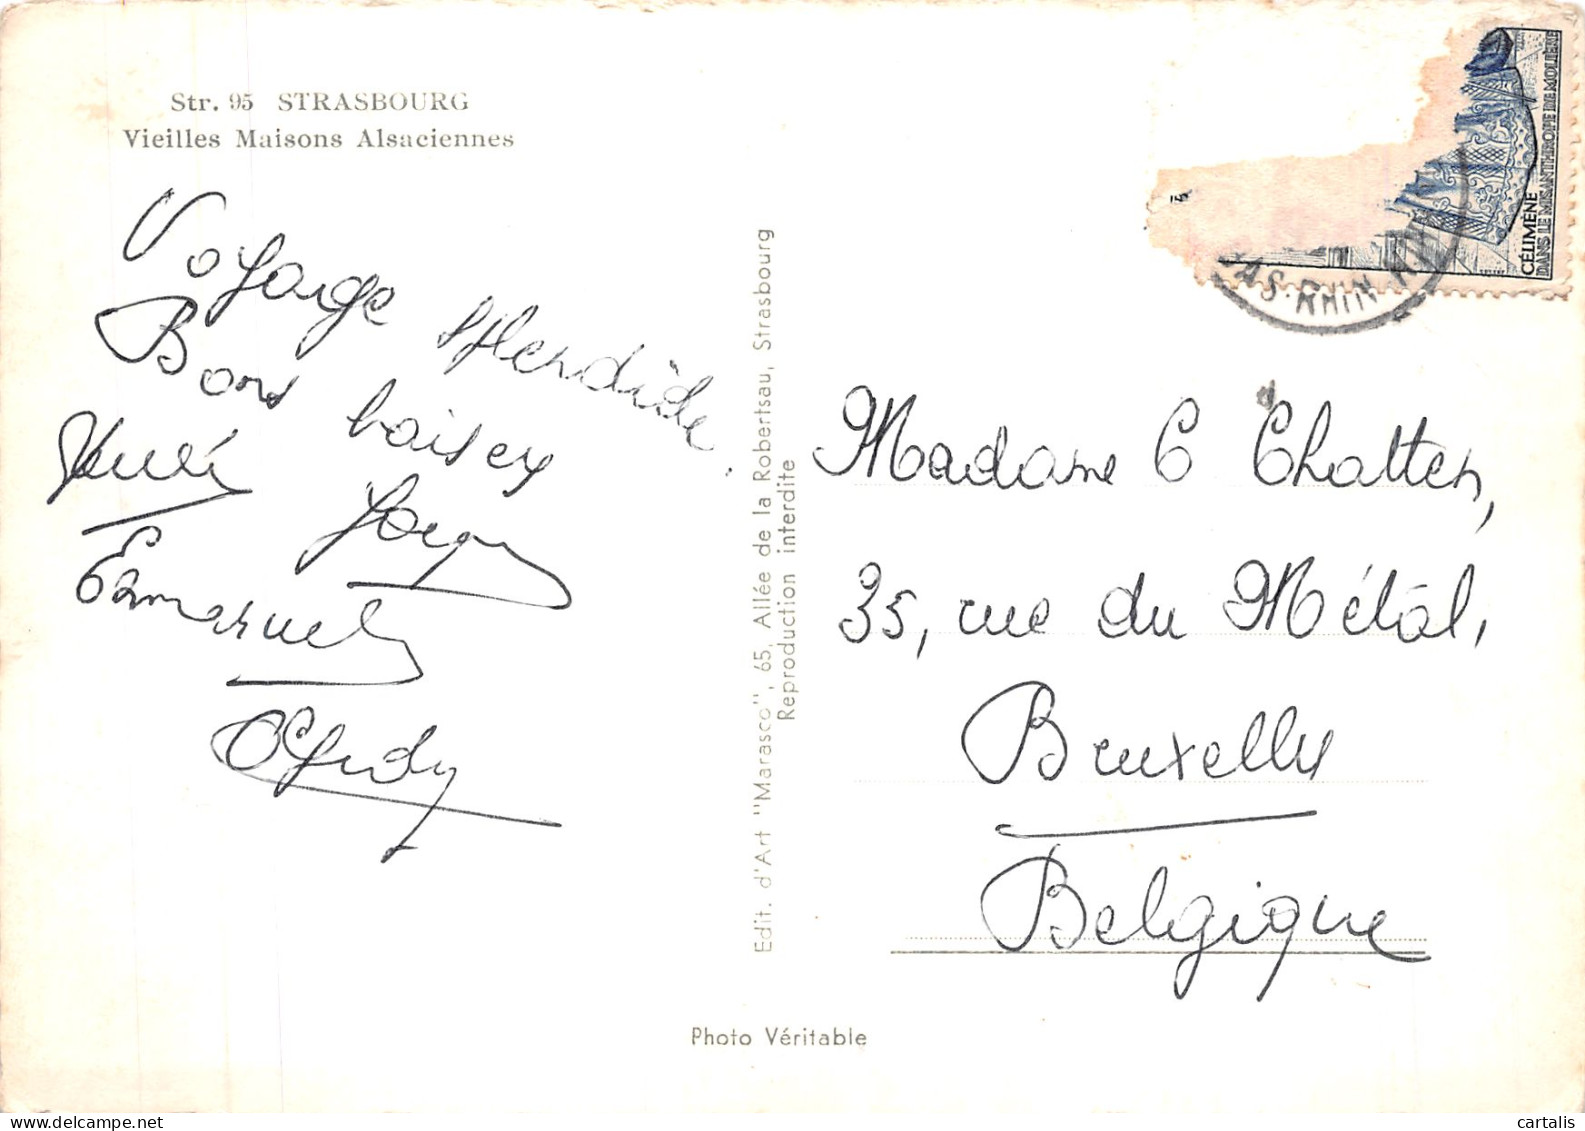 Str. 95 STRASBOURG
Vieilles Maisons Alsaciennes
Voyage splendide.
Bons baisers
Emmanuel
Edit. d'Art "Marasco", 65, Allée de la Robertsau, Strasbourg
Reproduction interdite
CÉLIMÈNE
DANS LE MISANTHROPE DE MOLIÈRE
BAS-RHIN
Madame C Chatten,
35, rue du Métal,
Bruxelles
Belgique
Photo Véritable
cartalis